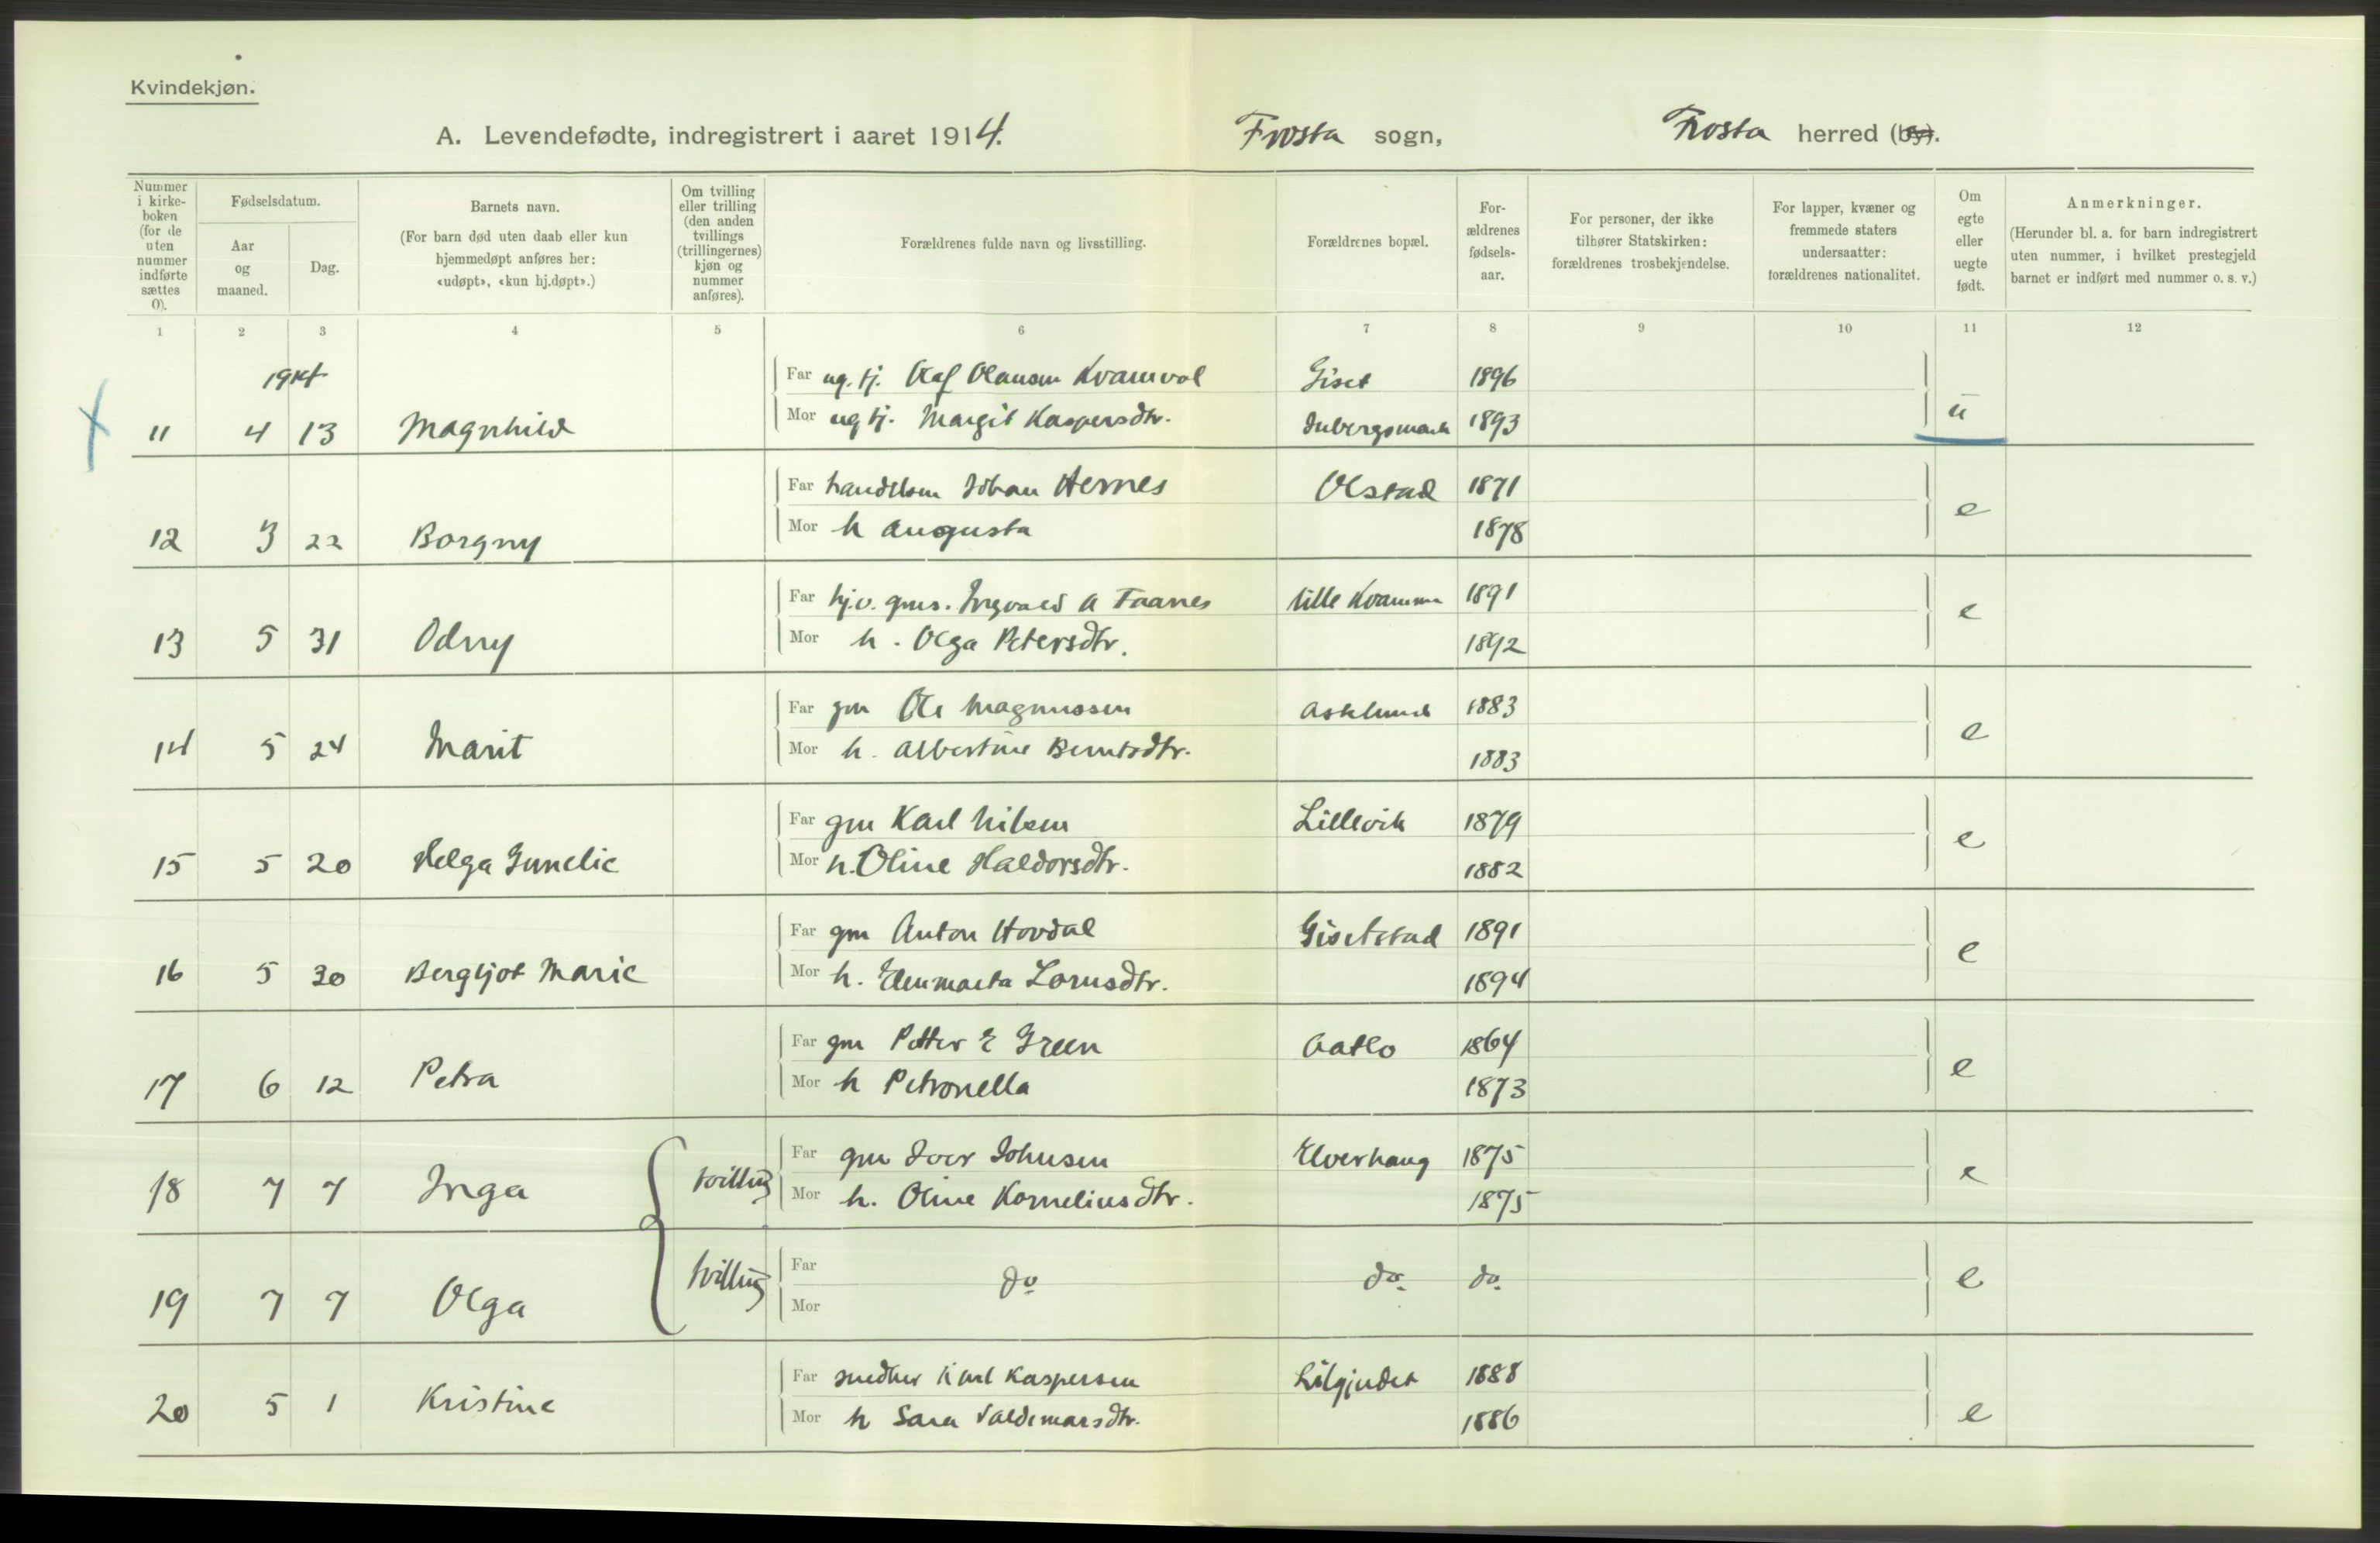 Kvindekjøn.
A. Levendefødte, indregistrert i aaret 1914. Frosta sogn, Frosta herred (by).
Nummer i kirke-boken (for de uten nummer indførte sættes 0).
Fødselsdatum.
Aar og maaned.
Dag.
Barnets navn.
(For barn død uten daab eller kun hjemmedøpt anføres her: «udøpt», «kun hj.døpt».)
Om tvilling eller trilling (den anden tvillings (trillingernes) kjøn og nummer anføres).
Forældrenes fulde navn og livsstilling.
Forældrenes bopæl.
For-ældrenes fødsels-aar.
For personer, der ikke tilhører Statskirken: forældrenes trosbekjendelse.
For lapper, kvæner og fremmede staters undersaatter: forældrenes nationalitet.
Om egte eller uegte født.
Anmerkninger.
(Herunder bl. a. for barn indregistrert uten nummer, i hvilket prestegjeld barnet er indført med nummer o. s. v.)
1 2 3 4 5 6 7 8 9 10 11 12
1914
Far ug. tj. Olaf Olausen Kvamvol Giset 1896
11 4 13 Magnhild Mor ug tj. Margit Kaspersdtr. 1893 u
Far Johan Hernes Olstad 1871
12 3 22 Borgny Mor h Augusta 1878 e
Far hj.v. gms. Ingvald A Faanes lille Kvamme 1891
13 5 31 Odny Mor h. Olga Petersdtr. 1892 e
Far gm Ole Magnussen Asklund 1883
14 5 24 Marit Mor h. Albertine Berntsdtr. 1883 e
Far gm Karl Nilsen Lillevik 1879
15 5 20 Helga Gunelie Mor h. Oline Haldorsdtr. 1882 e
Far gm Anton Hovdal Gisetstad 1891
16 5 30 Bergljot Marie Mor h. Elenmarta Lornsdtr. 1894 e
Far gm Petter E Green Aatlo 1864
17 6 12 Petra Mor h Petronella 1873 e
Far gm Iver Johnsen Elverhaug 1875
18 7 7 Inga tvilling Mor h. Oline Korneliusdtr. 1875 e
19 7 7 Olga tvilling Far Mor do do. do. e
Far Karl Kaspersen 1888
20 5 1 Kristine Mor h Sara Valdemarsdtr. 1886 e